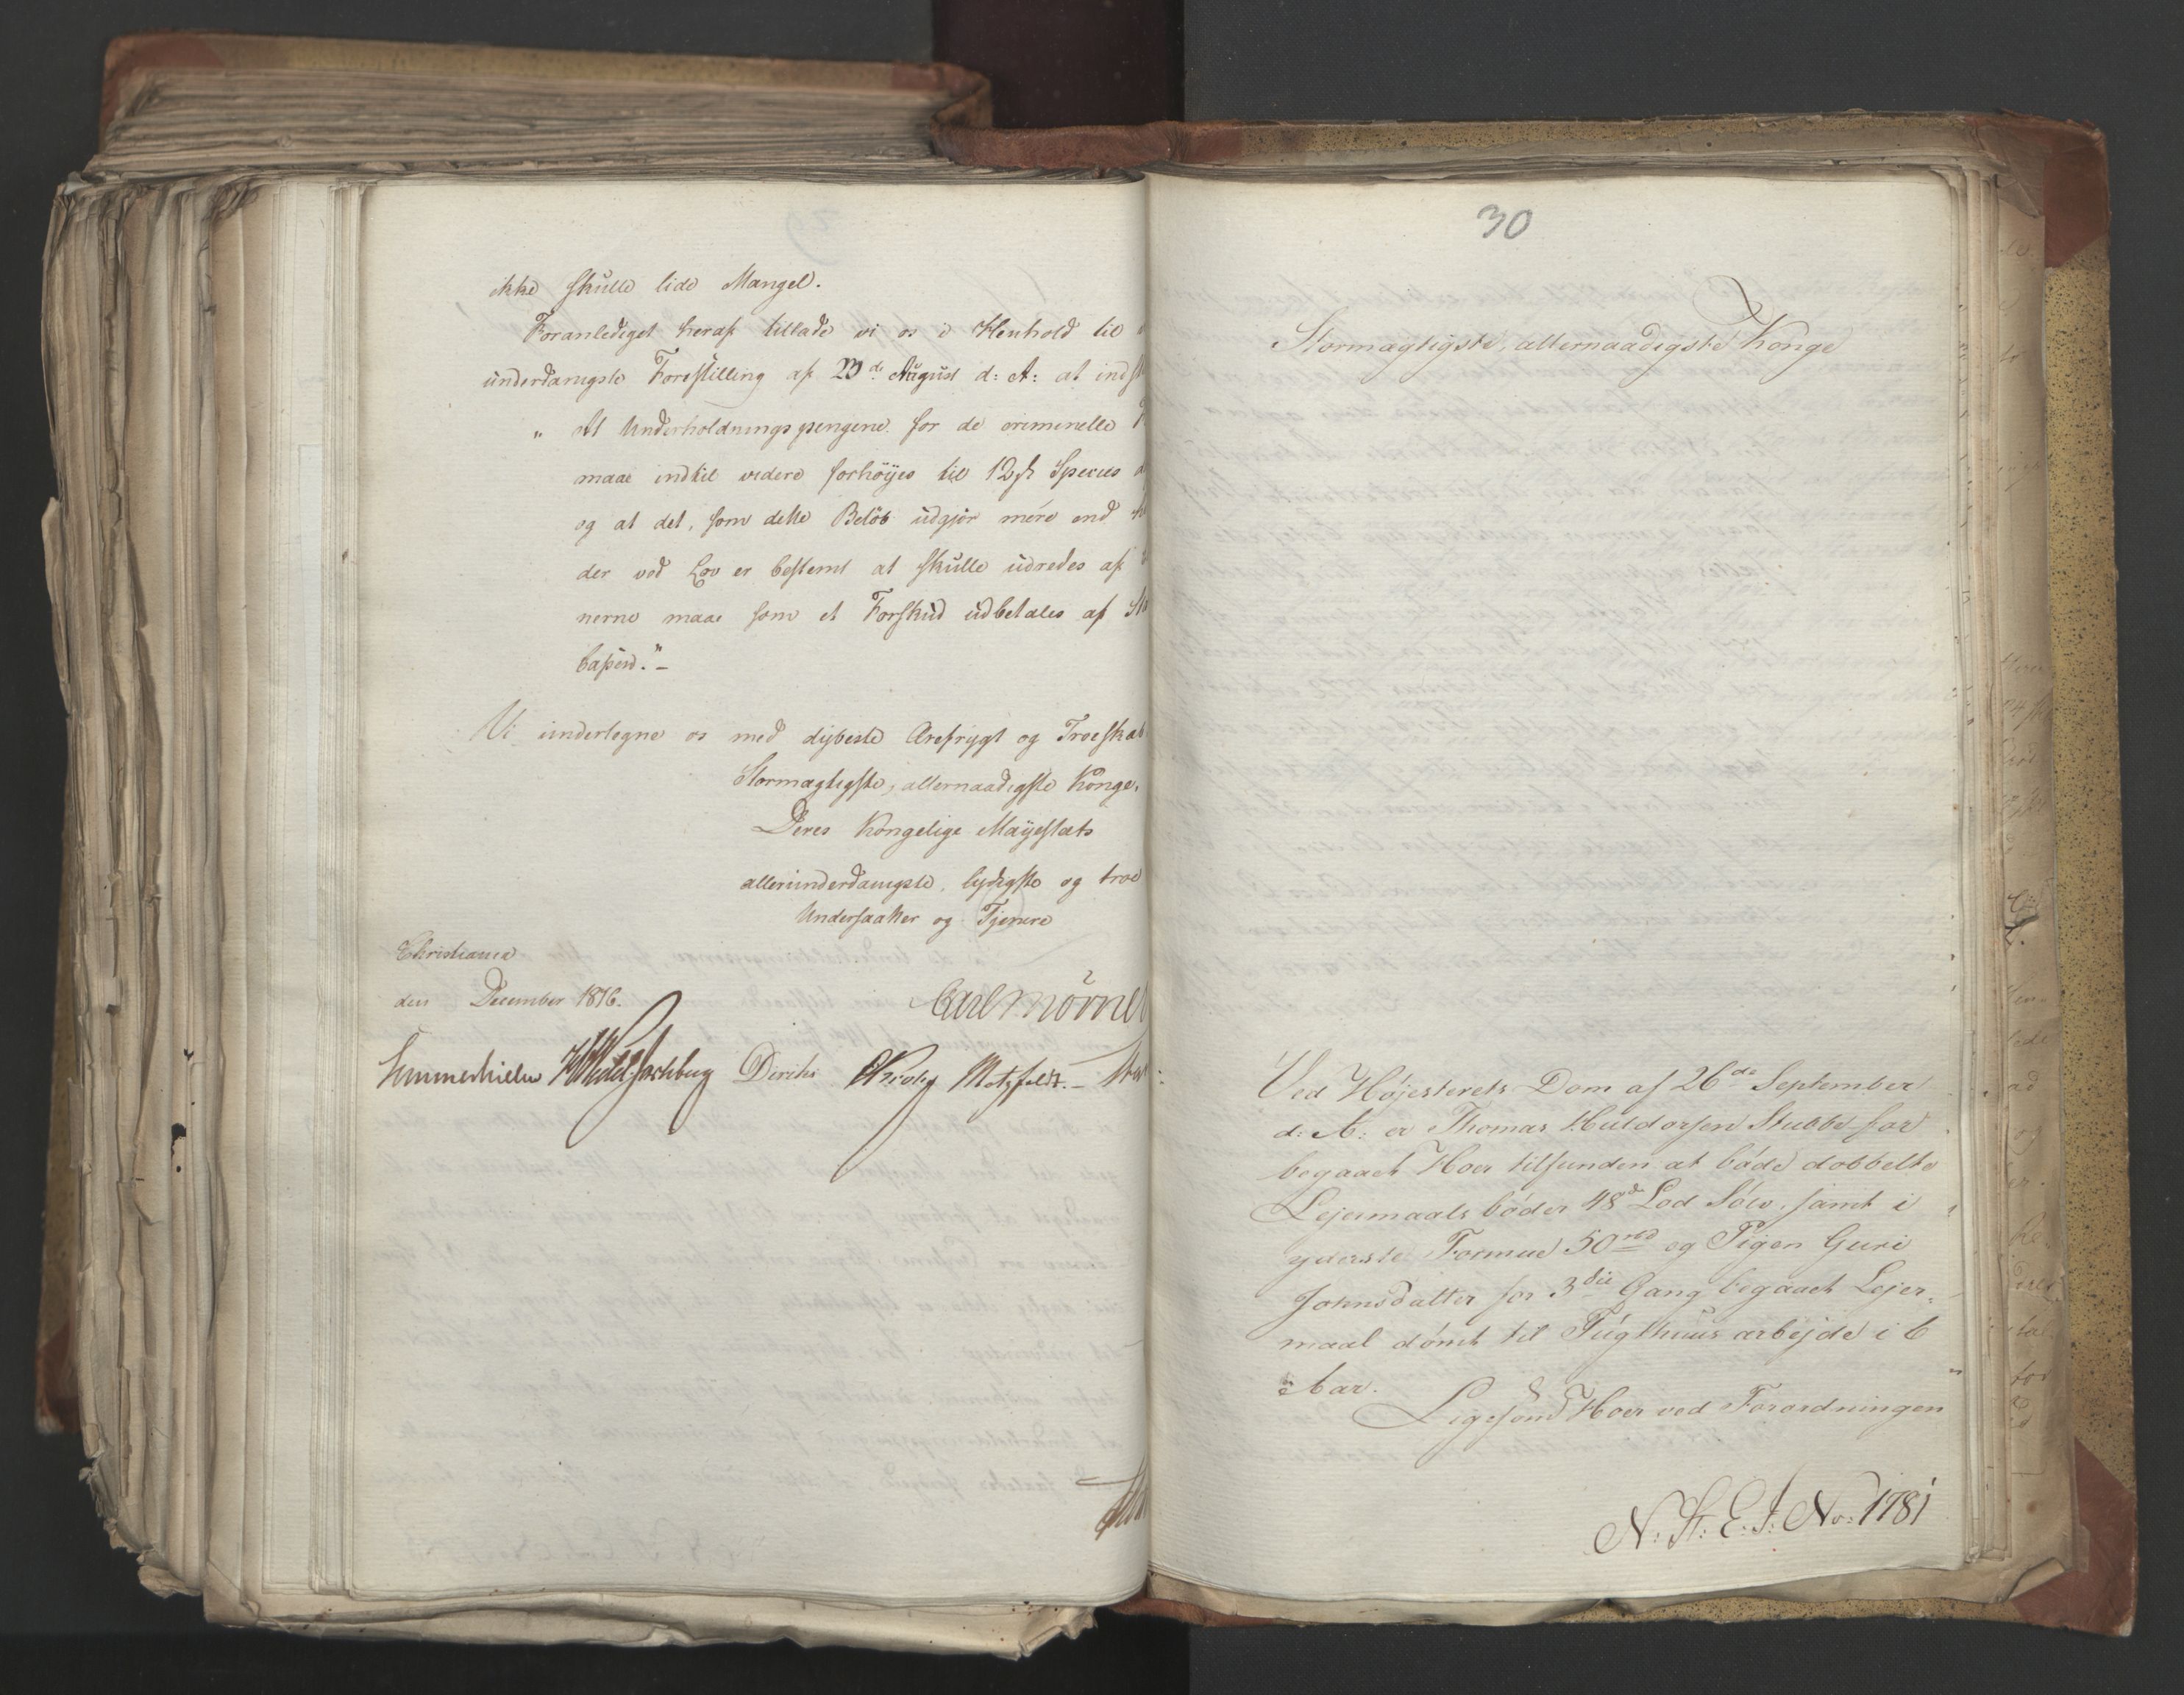 ikke skulle lide Mangel.
Foranlediget heraf tillade vi os i Henhold til
underdanigste Forestilling af 23de August d: A: at indst
" At Underholdningspengene for de criminelle
maae indtil videre forhöyes til 12 s Species
og at det, som dette Belöb udgjör mére end
der ved Lov er bestemt at skulle udredes af
nerne maae som et Forskud udbetales af Sta
cassen." -
Vi undertegne os med dybeste Ærefrygt og Troeskab
Stormægtigste, allernaadigste Konge,
Deres Kongelige Mayestæts
allerunderdanigste, lydigste og troe
Undersaatter og Tjenere
Christiania
den December 1816.
Carl Mörner
Sommerhielm Wedel Jarlsberg Diriks Krohg Motzfeldt. -
30
Stormægtigste, allernaadigste Konge
Ved Højesterets Dom af 26de September
d: A: er Thomas Huldorsen Stubbe for
begaaet Hoer tilfunden at bøde dobbelte
Lejermaals bøder 48 Lod Sölv, samt i
yderste Formue 50 rd og Pigen Guri
Johnsdatter for 3die Gang begaaet Lejer-
maal dömt til Tugthuus arbejde i 6
Aar.
Ligesom Hoer ved Forordningen
N: St: E. J: No: 1781